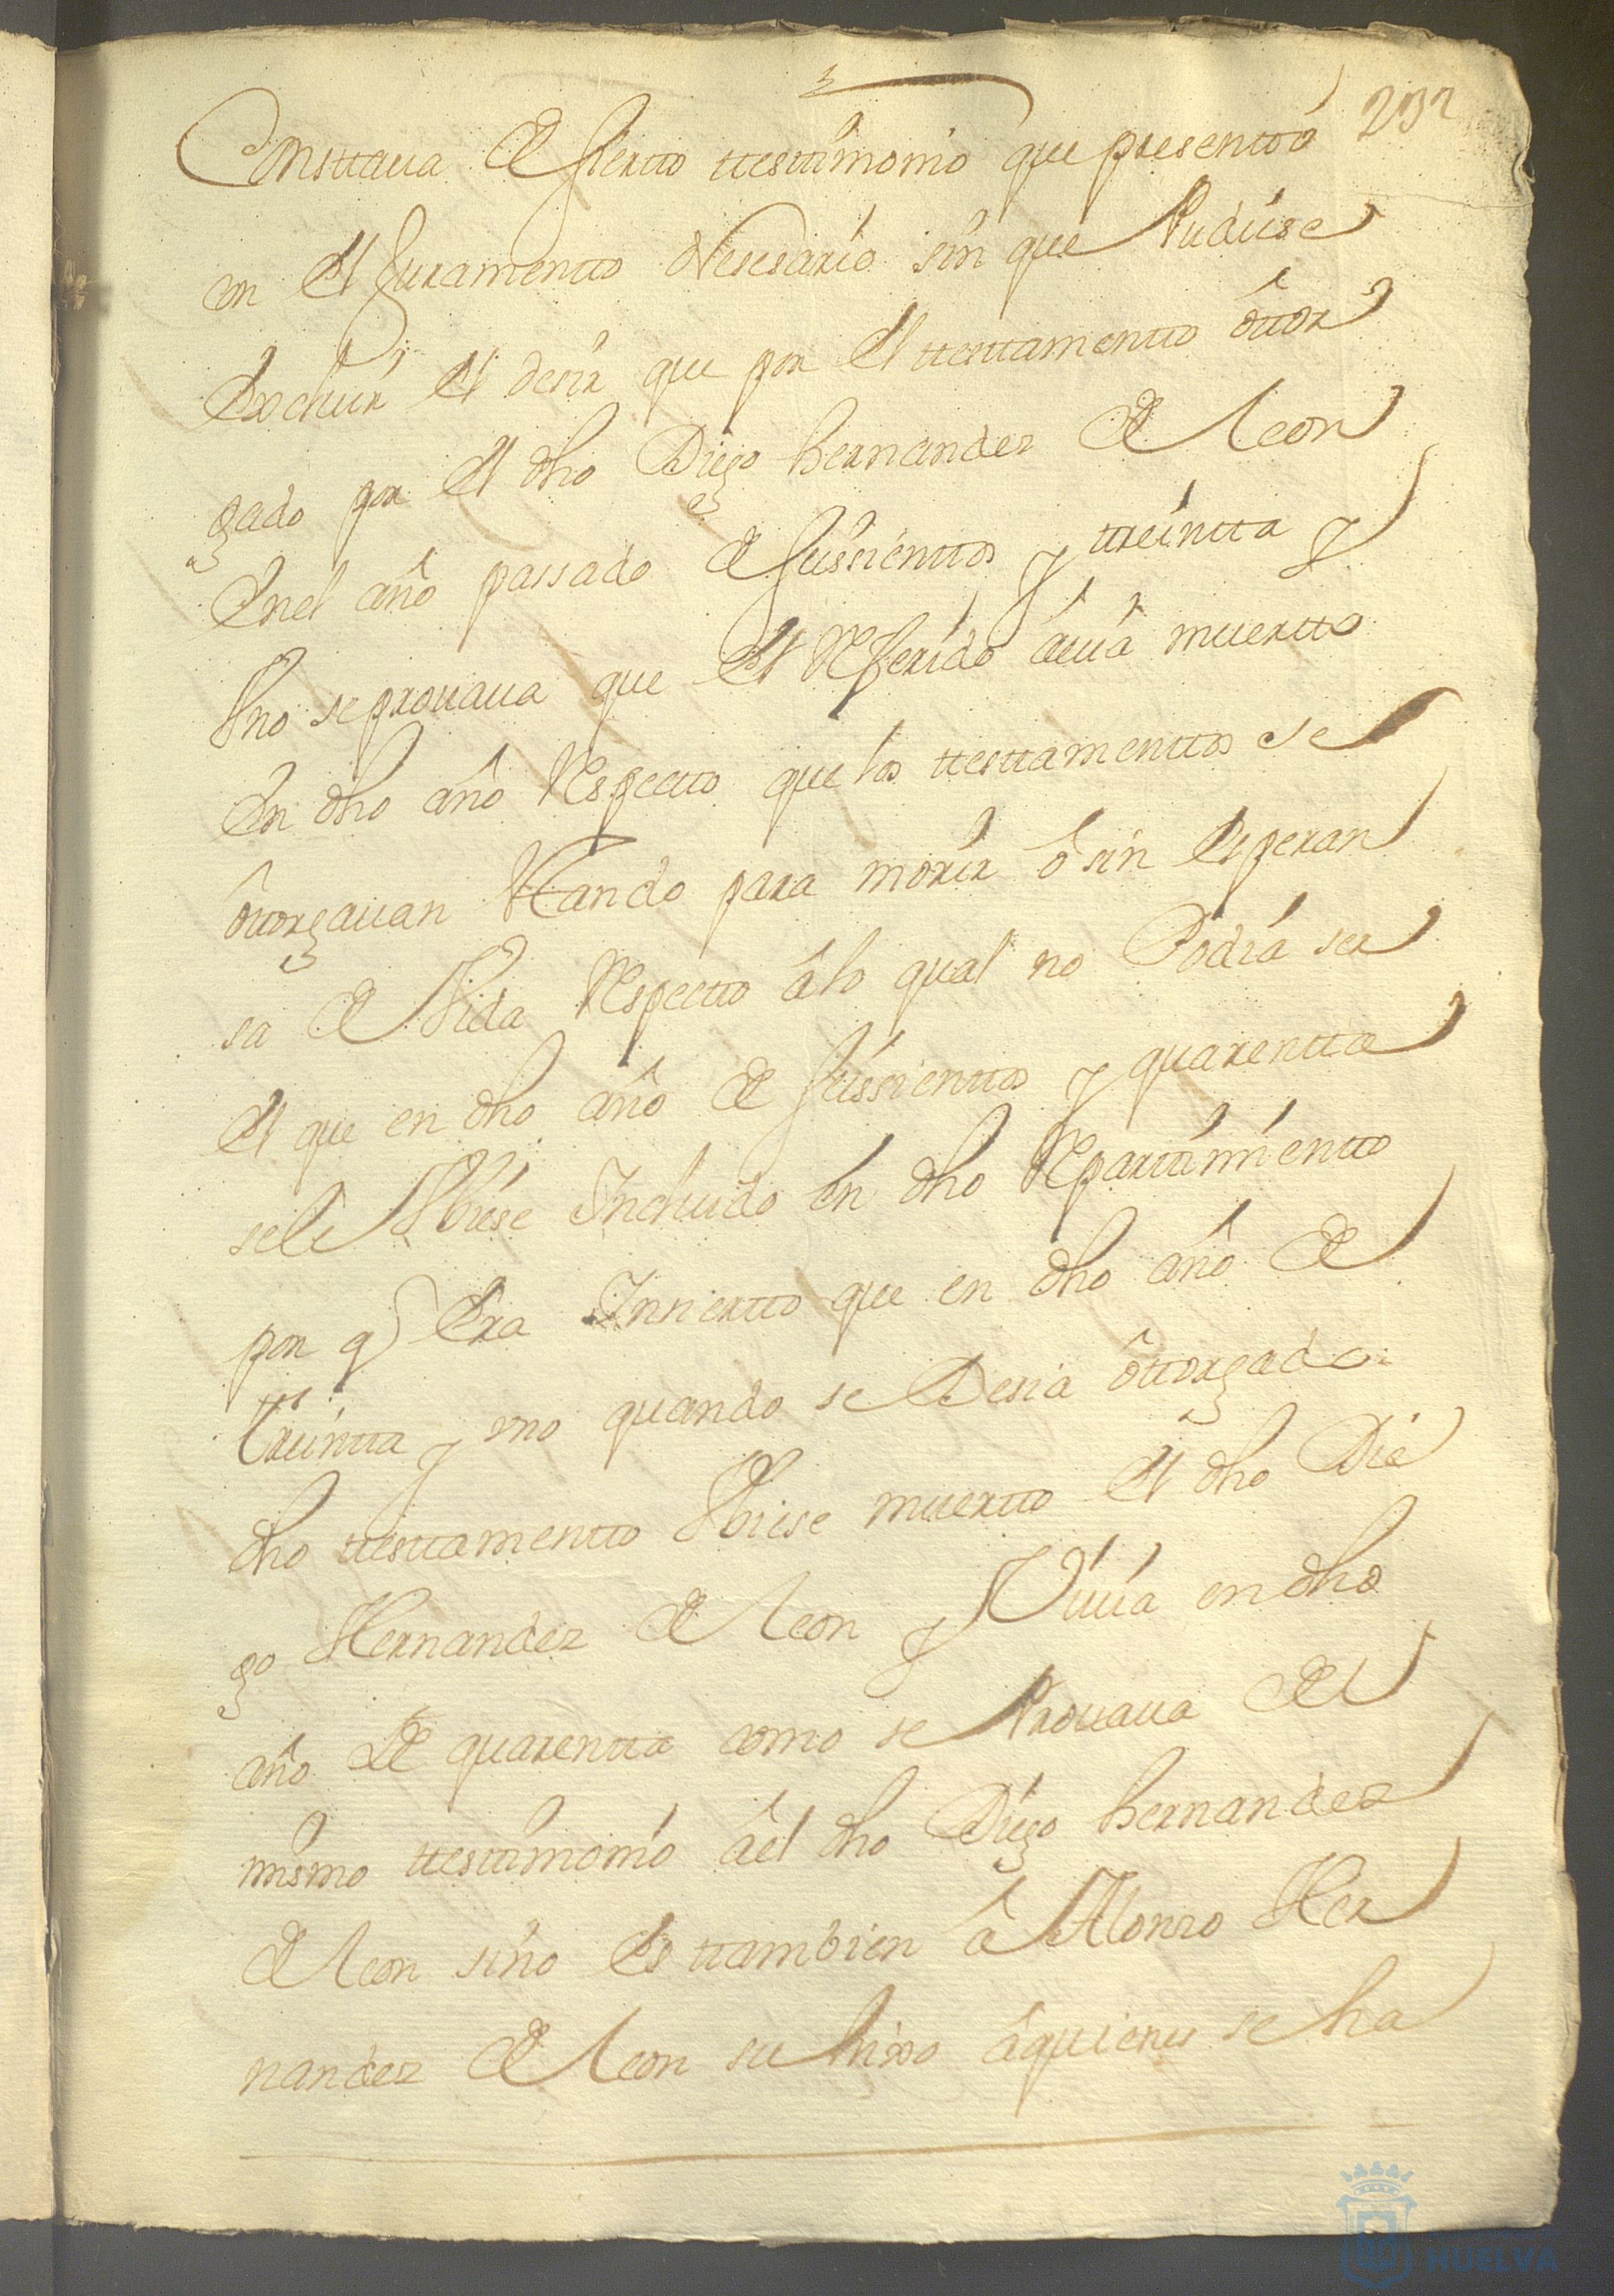 232
Consttaua de Sierto ttesttimonio que presentto
en el Juramentto Nesesario sin que Pudiese
Excluir el desir que por el ttesttamentto ôttor
gado por el dho Diego hernandez de Leon
Enel año passado de seissienttos y ttreintta y
Vno se prouaua que el Referido auia muertto
En dho año Respectto que los ttesttamenttos se
ôttorgauan Stando para morir ô sin Esperan
sa de Vida Respectto âlo qual no Podia ser
el que en dho año de seissienttos y quarentta
sele Vbiese Incluido en dho Repartimientto
por q Era Insiertto que en dho año de
treintta y vno quando se Desia ôttorgado
dho ttesttamentto Vbiese muertto el dho Die
go Hernandez de Leon y Viuia en dho
año de quarentta como se Prouaua del
mismo ttesttimonio âel dho Diego hernandez
de Leon sino es ttambien â Alonso Her
nandez de Leon su hixo âquienes se ha
HUELVA